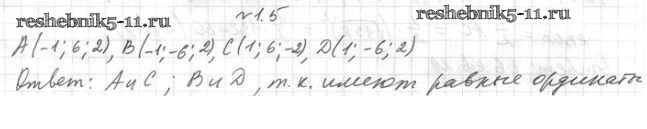 №1.5
reshebnik5-11.ru reshebnik5-11.ru
A(-1; 6; 2), B(-1; -6; 2), C(1; 6; -2), D(1; -6; 2)
Ответ: A и C ; B и D , т.к. имеют равные ординаты